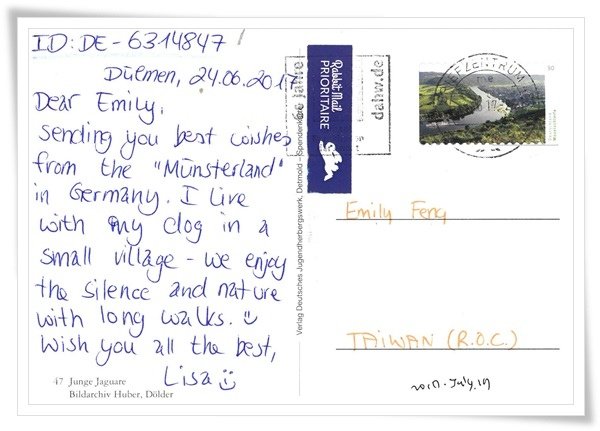 ID: DE-6314847
Dülmen, 24.06.2017
Dear Emily,
sending you best wishes
from the "Münsterland"
in Germany. I live
with my dog in a
small village - we enjoy
the silence and nature
with long walks.
Wish you all the best,
Lisa
47 Junge Jaguare
Bildarchiv Huber, Dölder
Verlag Deutsches Jugendherbergswerk, Detmold – Spendenkarte
Jahre
Rabbit Mail
PRIORITAIRE
dahw.de
BRIEFZENTRUM
90
Emily Feng
TAIWAN (R.O.C.)
2017. July. 19